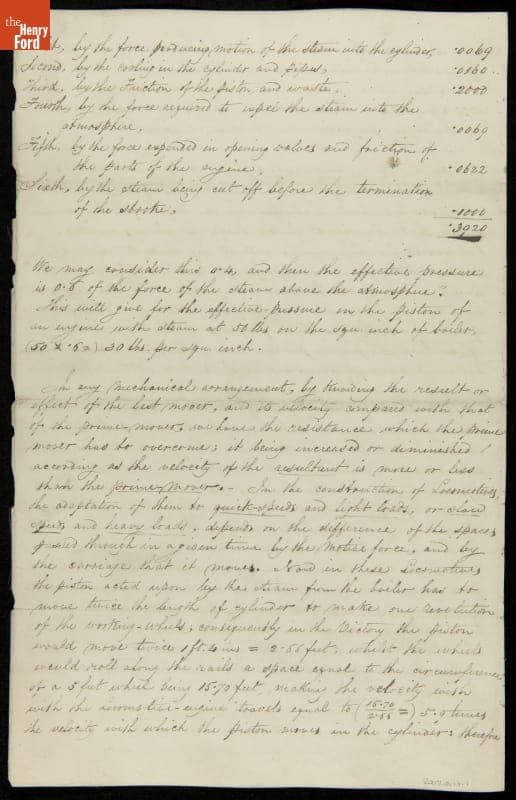 the
Henry
Ford
by the force producing motion of the steam into the cylinder, .0069
Second, by the cooling in the cylinder and pipes, .0160
Third, by the Friction of the piston and waste, .2000
Fourth, by the force required to expel the steam into the
atmosphere, .0069
Fifth, by the force expended in opening valves and friction of
the parts of the engine, .0622
Sixth, by the steam being cut off before the termination
of the stroke, .1000
.3920
We may consider this 0.4, and then the effective pressure
is 0.6 of the force of the steam above the atmosphere".
This will give for the effective-pressure on the piston of
an engine with steam at 50 lbs on the squ inch of boiler,
(50 × .6 =) 30 lbs. per squ inch.
In any mechanical arrangement, by knowing the result or
effect of the last mover, and its velocity compared with that
of the prime-mover, we have the resistance which the prime
mover has to overcome; it being increased or diminished
according as the velocity of the resultant is more or less
than the prime-mover. - In the construction of Locomotives,
the adaptation of them to quick-speeds and light loads, or slow
speeds and heavy loads, depends on the difference of the spaces
passed through in a given time by the motive force, and by
the carriage that it moves. Now in these Locomotives
the piston acted upon by the steam from the boiler has to
move twice the length of cylinder to make one revolution
of the working-wheels; consequently in the Victory the piston
would move twice 1 ft. 4 ins = 2.66 feet; whilst the wheels
would roll along the rails a space equal to the circumference
of a 5 feet wheel being 15.70 feet, making the velocity with
wich the locomotive-engine travels equal to (15.70/2.66 =) 5.9 times
the velocity with which the piston moves in the cylinder: therefore